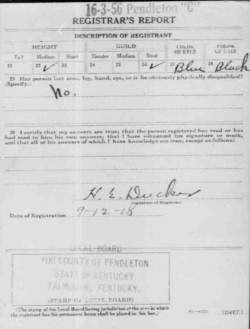 16-3-56 Pendleton "C"
REGISTRAR'S REPORT
DESCRIPTION OF REGISTRANT
HEIGHT BUILD COLOR OF EYES COLOR OF HAIR
Tall Medium Short Slender Medium Stout Blue Black
21 22 ✓ 23 24 25 26 ✓ 27 28
29 Has person lost arm, leg, hand, eye, or is he obviously physically disqualified?
(Specify.)
No.
30 I certify that my answers are true; that the person registered has read or has
had read to him his own answers; that I have witnessed his signature or mark,
and that all of his answers of which I have knowledge are true, except as follows:
H. E. Ducker
Date of Registration 9-12-18
LOCAL BOARD
FOR COUNTY OF PENDLETON
STATE OF KENTUCKY
FALMOUTH, KENTUCKY.
(STAMP OF LOCAL BOARD)
(The stamp of the Local Board having jurisdiction of the area in which
the registrant has his permanent home shall be placed in this box.)